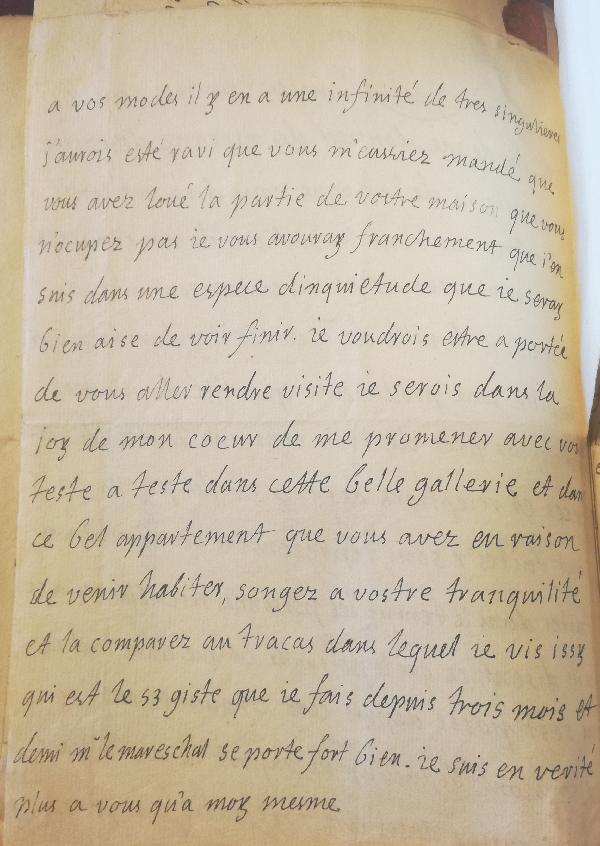 a vos modes il y en a une infinité de tres singulieres
j'aurois esté ravi que vous m'eussiez mandé que
vous avez loué la partie de vostre maison que vous
n'ocupez pas ie vous avouray franchement que i'en
suis dans une espece dinquietude que ie seray
bien aise de voir finir. ie voudrois estre a portée
de vous aller rendre visite ie serois dans la
joy de mon coeur de me promener avec vous
teste a teste dans cette belle gallerie et dans
ce bel appartement que vous avez en raison
de venir habiter, songez a vostre tranquilité
et la comparez au tracas dans lequel ie vis issy
qui est le 53 giste que ie fais depuis trois mois et
demi mr le mareschal se porte fort bien. ie suis en verité
plus a vous qu'a moy mesme